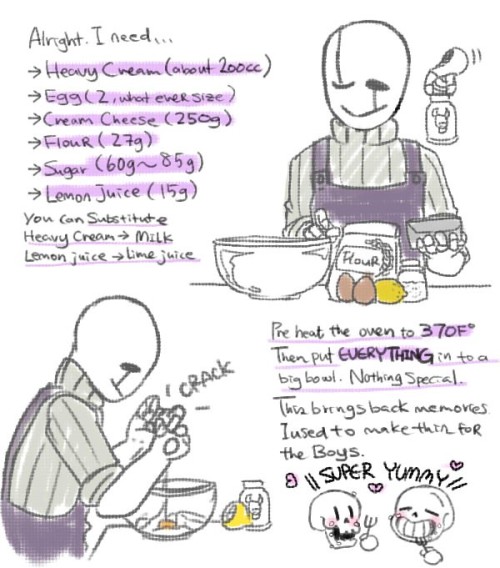 Alright. I need...
→ Heavy Cream (about 200cc)
→ Egg (2, what ever size)
→ Cream Cheese (250g)
→ Flour (27g)
→ Sugar (60g~85g)
→ Lemon Juice (15g)
You can Substitute
Heavy Cream → Milk
Lemon juice → lime juice
FLOUR
CRACK
Pre heat the oven to 370F°
Then put EVERYTHING in to a
big bowl. Nothing Special.
This brings back memories.
I used to make this for
the Boys.
SUPER YUMMY